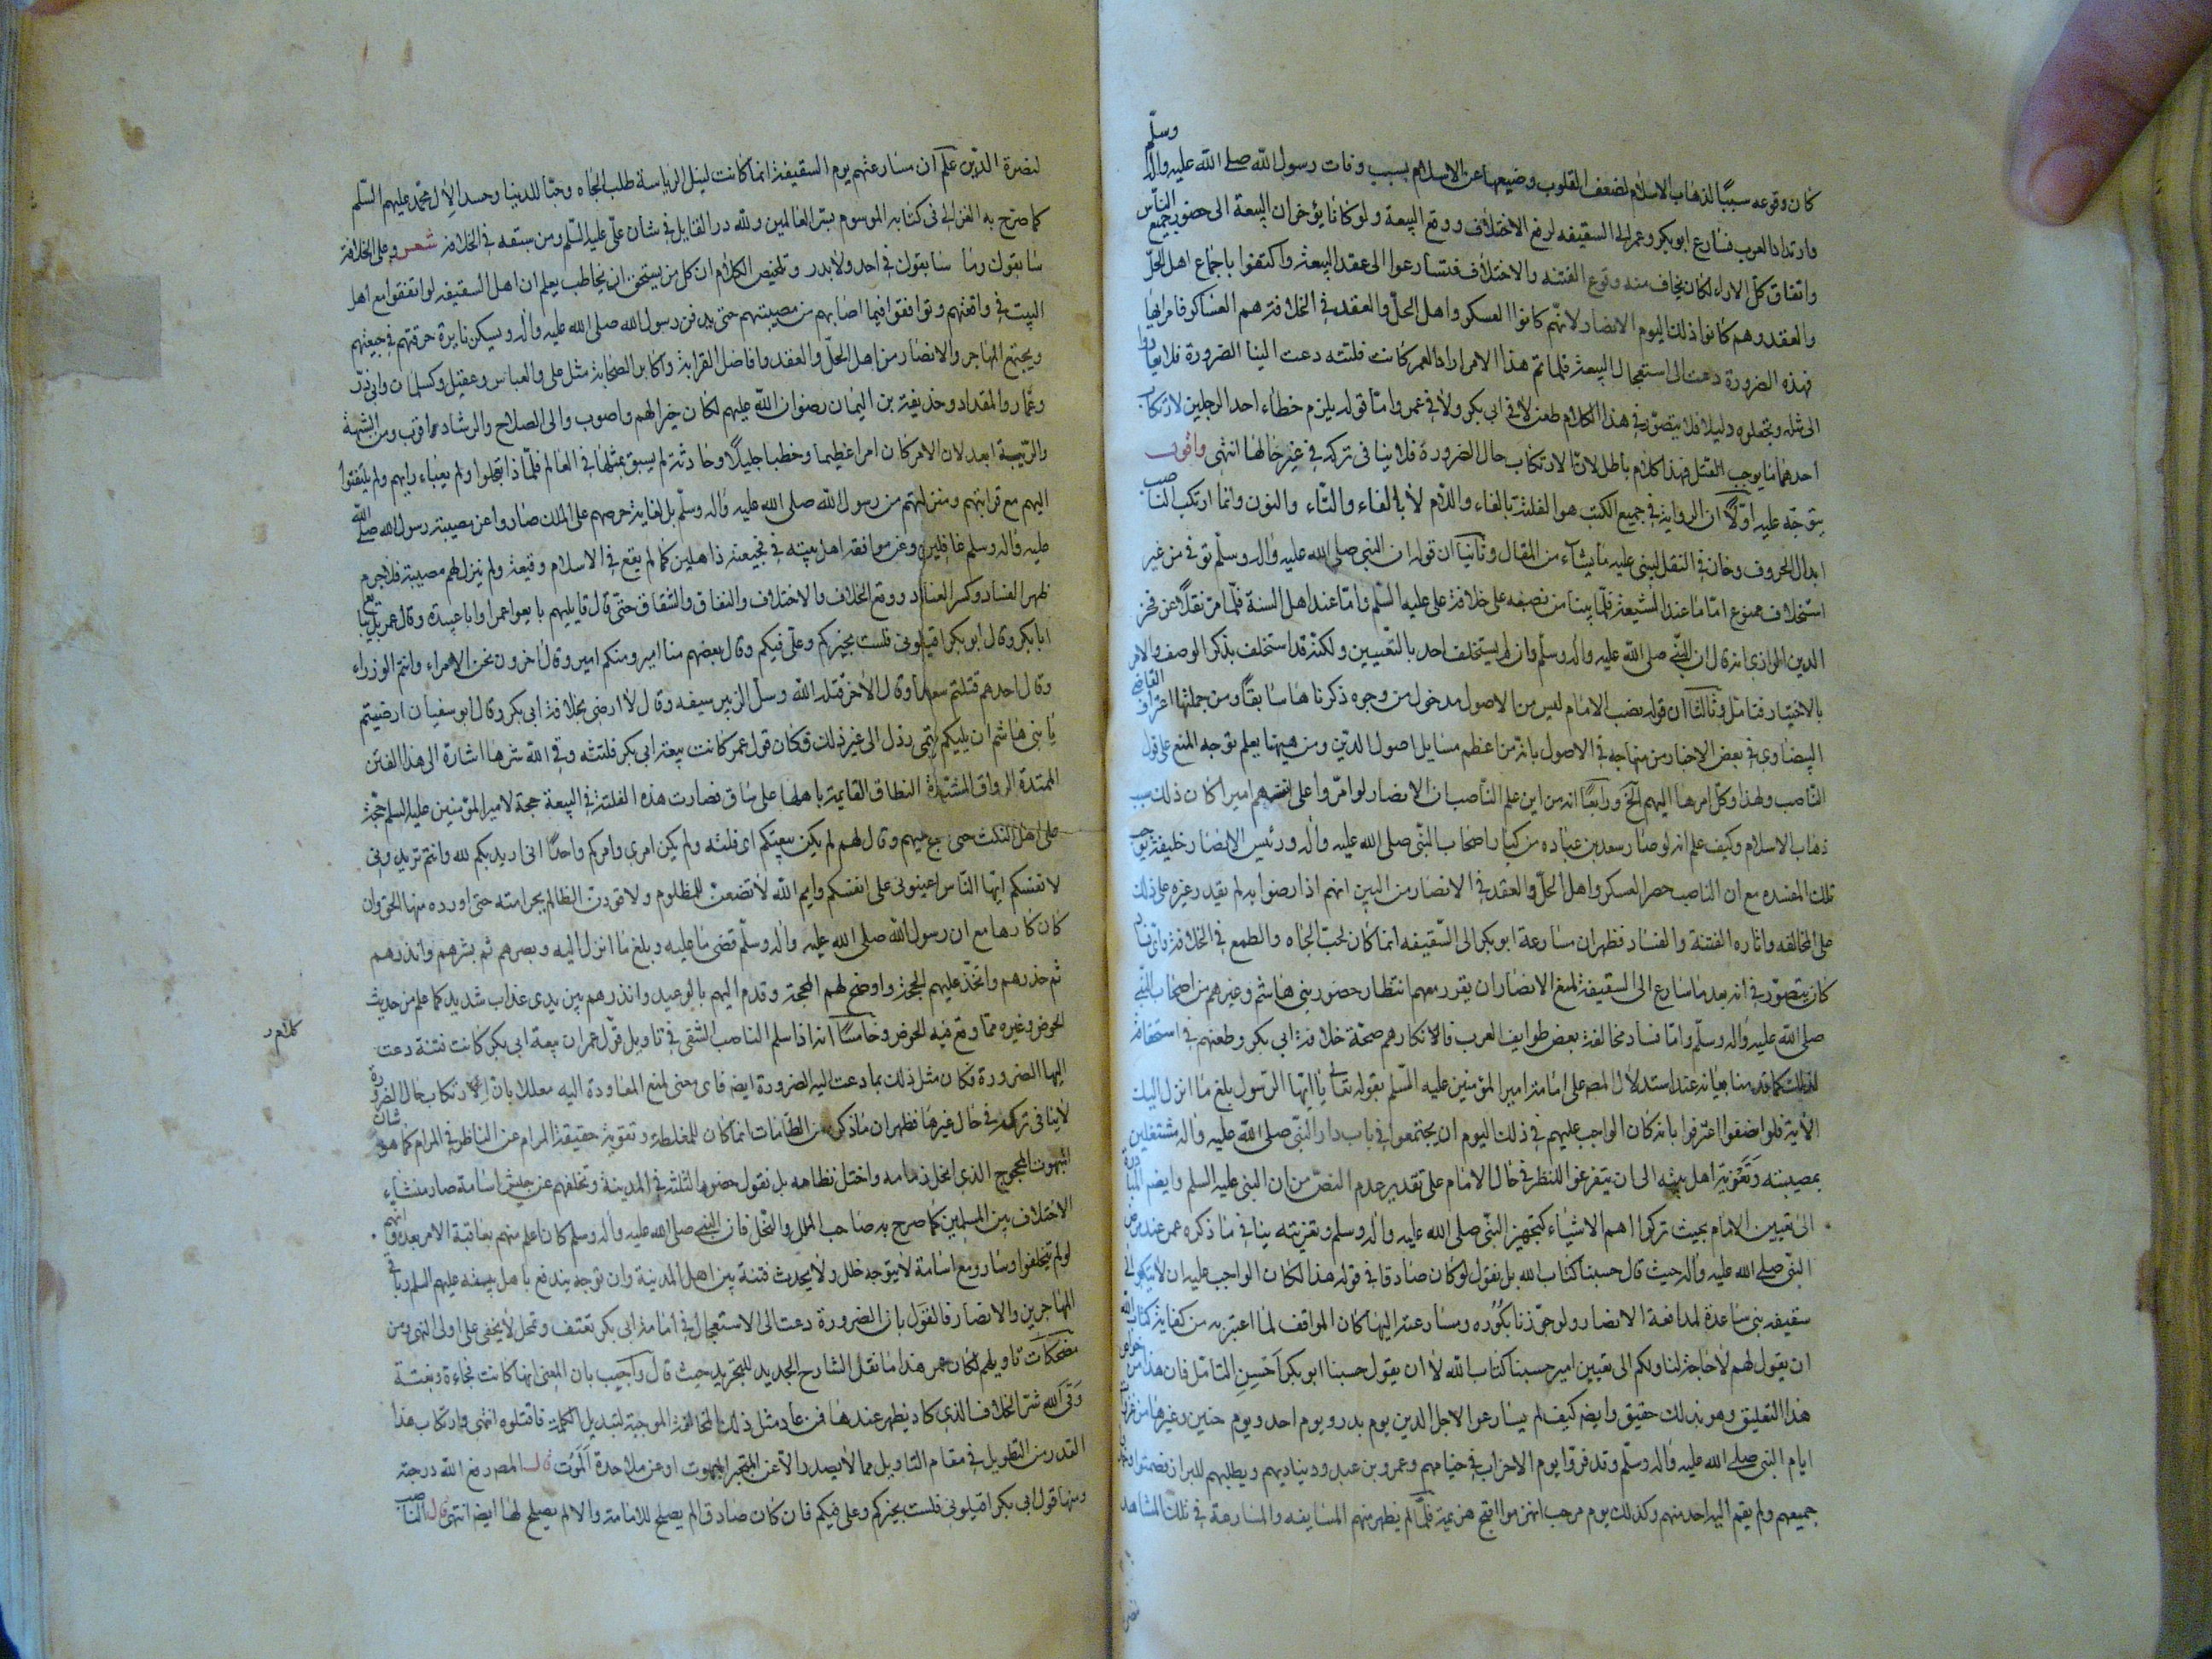 كان وقوعه سببًا لذهاب الاسلام لضعف القلوب وضيعها عن الاسلام بسبب وفات رسول الله صلى الله عليه وآله وسلّم
وارتداد العرب فسارع ابو بكر وعمر الى السقيفه لرفع الاختلاف ووقع البيعة ولو كانا يؤخران البيعة الى حضور جميع الناس
واتفاق كل الاراء لكان يخاف منه وقوع الفتنه والاختلاف فتسارعوا الى عقد البيعة واكتفوا باجماع اهل الحلّ
والعقد وهم كانوا ذلك اليوم الانصار لانّهم كانوا العسكر واهل الحلّ والعقد في الخلافة هم العساكر فامرايها
فهذه الضرورة دعت الى استعجال البيعة فلما تم هذا الامر اراد العمر كانت فلتته دعت الينا الضرورة فلا يعادوا
الى مثله وتجعلوه دليلا فلا يتصوّر في هذا الكلام طعن لا في ابى بكر ولا في عمر وامّا قوله يلزم خطاء احد الرجلين لارتكاب
احدهما ما يوجب القتل فهذا كلام باطل لانّ الارتكاب حال الضرورة فلا ينافى تركه في غير حالها انتهى واقول
يتوجّه عليه اوّلًا ان الرواية في جميع الكتب هو الفلتة بالفاء واللام لا بالفاء والتاء والنون وانما ارتكب الناصب
ابدال الحروف وخان في النقل ليبنى عليه ما يشاء من المقال وثانيا ان قوله ان النبى صلى الله عليه وآله وسلّم توفى من غير
استخلاف ممنوع امّا عند الشيعة فلما بينا من نصه على خلافة على عليه السّلم وامّا عند اهل السنة فلما مرّ نقلًا عن فخر
الدين الرازى انه قال ان النّبي صلى الله عليه وآله وسلّم وان لم يستخلف احد بالتّعيين ولكنّه قد استخلف بذكر الوصف والامر
بالاختيار فتامّل وثالثا ان قوله نصب الامام ليس من الاصول مدخول من وجوه ذكرناها سابقًا ومن جملتها اعتراف القاضى
البيضاوى في بعض الاخبار من منهاجه في الاصول بانه من اعظم مسايل اصول الدّين ومن هيهنا يعلم توجه المنع على قول
النّاصب ولهذا وكل امرها اليهم الخ ورابعًا انه من اين علم النّاصب ان الانصار لو امّروا على انفسهم اميرا كان ذلك سبب
ذهاب الاسلام وكيف علم انه لو صار سعد بن عباده من كبار اصحاب النبّى صلى الله عليه وآله ورئيس الانصار خليفة يوجب
تلك المفسده مع ان الناصب حصر العسكر واهل الحلّ والعقد في الانصار من البين انهم اذا رضوا به لم يقدر غيره على ذلك
على المخالفه واثاره الفتنة والفساد فظهر ان مسارعة ابو بكر الى السّقيفه انما كان لحبّ الجاه والطمع في الخلافة
كان يتصوّر في انه بعد ما سارع الى السقيفة لمنع الانصار ان يقرر معهم انتظار حضور بني هاشم وغيرهم من اصحاب النّبي
صلى الله عليه وآله وسلّم وامّا فساد مخالفة بعض طوايف العرب فالانكارهم صحّة خلافة ابى بكر وطعنهم في استحقاقه
لذلك كما قدمنا بيانه عند استدلال المص على امامة امير المؤمنين عليه السّلم بقوله تعالى يا ايّها الرّسول بلغ ما انزل اليك
الآية فلو انصفوا اعترفوا بانه كان الواجب عليهم في ذلك اليوم ان يجتمعوا في باب دار النّبى صلى الله عليه وآله مشتغلين
بمصيبته وتعزية اهل بيته الى ان يتفرغوا للنظر في حال الامام على تقدير عدم النصّ من ان النبى عليه السلم وايضا المبادرة
الى تعيين الامام بحيث تركوا اهم الاشياء كتجهيز النبّى صلى الله عليه وآله وسلم وتعزيته ينافي ما ذكره عمر عند مرض
النبّى صلى الله عليه وآله حيث قال حسبنا كتاب الله بل نقول لو كان صادقا في قوله هذا لكان الواجب عليه ان لا
سقيفه بنى ساعدة لمدافعة الانصار ولو جوّزنا بكوره ومسارعته اليها كان المواقف لما اعتبر به من كفاية كتاب الله
ان يقول لهم لا حاجة لنا ولكم الى تعيين امير حسبنا كتاب الله لا ان يقول حسبنا ابو بكر احسن التامّل فان هذا من
هذا التعليق وهو بذلك حقيق وايضا كيف لم يسارعوا لاجل الدين يوم بدر ويوم احد ويوم حنين وغيرها من
ايام النبى صلى الله عليه وآله وسلّم وقد فرّوا يوم الاحزاب في خيامهم وعمرو بن عبد ود يناديهم ويطلبهم للبراز فصمتوا
جميعهم ولم يقم اليه احد منهم وكذلك يوم مرحب انهزموا اقبح هزيمة فلمّا لم يظهر منهم المسابقه والمسارعة في تلك المشاهد
لنصرة الدّين علم ان مسارعتهم يوم السقيفة انما كانت لنيل الرّياسة طلب الجاه وحبّا للدينا وحسد الآل محمّد عليهم السّلم
كما صرّح به الغزالى فى كتابه الموسوم بسّر العالمين ولله در القايل في شان علىّ عليه السّلم ومن سبقه في الخلافة شعر وعلى الخلافة
سابقوك وما سابقوك في احد ولا بدر وتلخيص الكلام ان كل من يستحق ان يخاطب يعلم ان اهل السقيفه لو اتفقوا مع اهل
البيت في واقعتهم وتوافقوا فيما اصابهم من مصيبتهم حتى يدفن رسول الله صلى الله عليه وآله ويسكن نايرة حرقتهم في
ويجتمع المهاجر والانصار من اهل الحلّ والعقد وافاضل القرابة واكابر الصّحابة مثل على والعباس وعقيل وسلمان وابى ذرّ
وعمّار والمقداد وحذيفة بن اليمان رضوان الله عليهم لكان خيرا لهم واصوب والى الصلاح والرشاد اقرب ومن الشبهة
والرّيبة ابعد لان الامر كان امرا عظيما وخطبا جليلًا وحادثة لم يسبق بمثلها في العالم فلمّا ذا تعجلوا ولم يعباء وايهم ولم يلتفتوا
اليهم مع قرابتهم ومنزلتهم من رسول الله صلى الله عليه وآله وسلّم بل لغاية حرصهم على الملك صاروا عن مصيبة رسول الله صلى الله
عليه وآله وسلم غافلين وعن موافقة اهل بيته في فجيعته ذاهلين كما لم يقع في الاسلام وقيعة ولم ينزل لهم مصيبة فلا جرم
ظهر الفساد وكسر العناد ووقع الخلاف والاختلاف والنفاق والشقاق حتى قال قايلهم بايعوا عمرا وابا عبيدة وقال عمر بل نبايع
ابا بكر وقال ابو بكر اقيلونى فلست بخيركم وعلّى فيكم وقال بعضهم منا امير ومنكم امير وقال آخرون نحن الامراء وانتم الوزراء
وقال احدهم قتلتم سعدًا وقال الآخر قتله الله وسلّ الزبير سيفه وقال لا ارضى بخلافة ابى بكر وقال ابو سفيان ارضيتم
يا بنى هاشم ان يليكم تيمى رذل الى غير ذلك فكان قول عمر كانت بيعة ابى بكر فلتته وقى الله شرها اشارة الى هذا الفتن
الممتدة الرواق المشتدة النطاق القايمة باهلها على ساق فصارت هذه الفلتة في البيعة حجة لامير المؤمنين عليه السلم حجّة
على اهل النكث حيث عليهم وقال لهم لم يكن بيعتكم اى فلتة ولم يكن امرى وامركم واحدًا انى اريدكم لله وانتم تريدونى
لانفسكم ايّها النّاس اعينونى على انفسكم وايم الله لانصفن للمظلوم ولاقودن الظالم بحرامته حتى اورده منهل الحق وان
كان كارها مع ان رسول الله صلى الله عليه وآله وسلّم قضى ما عليه وبلغ ما انزل اليه وبصرهم ثم بشرهم وانذرهم
ثم حذرهم واتخذ عليهم الحجة واوضح لهم المحجة وقدم اليهم بالوعيد وانذرهم بين يدى عذاب شديد كما علم من حديث
الحوض وغيره ممّا وقع فيه الخوض وخامسًا انه اذا سلم الناصب الشقى في تاويل قول عمر ان بيعة ابى بكر كانت فتنة دعت
اليها الضرورة فكان مثل ذلك بما دعت اليه الضرورة ايضا فاى معنى لمنع المعاودة اليه معللا بان الارتكاب حال الضرورة
لا ينافى تركه في حال غيرها فظهر ان ما ذكره من الطّامات انما كان للمغلطة وتفويت حقيقة المرام عن الناظر في المرام كما هو شان
المبهوت المحجوج الذى انحل ذمامه واختل نظامه بل نقول حضور الثلثة في المدينة وتخلفهم عن جيش اسامة صار منشاء
الاختلاف بين المسلمين كما صرح به صاحب الملل والنّحل فان النبى صلى الله عليه وآله وسلم كان اعلم منهم بعاقبة الامر بعده وانهم
لو لم يتخلفوا وساروا مع اسامة لا يتوجه خلل ولا يحدث فتنة بين اهل المدينة وان توجه يندفع باهل بيته عليهم السلم
المهاجرين والانصار فالقول بان الضرورة دعت الى الاستعجال في امامة ابى بكر تعسّف وتمحل لا يخفى على اولى النهى ومن
مضحكات تاويلهم لكلام عمر هذا ما نقل الشارح الجديد للتجريد حيث قال واجيب بان المعنى انها كانت فجاءة وبغتة
وقى الله شرّ الخلاف الذى كاد يظهر عندها فمن عاد مثل ذلك المخالفة الموجبة لتبديل الكلمة فاقتلوه انتهى وارتكاب هذا
القدر من التطويل في مقام التاويل مما لا يصدر الّا عن المتحير المبهوت او عن ملاحدة المَوت قال المص رفع الله درجته
ومنها قول ابى بكر اقيلونى فلست بخيركم وعلى فيكم فان كان صادقا لم يصلح للامامة والا لم يصلح لها ايضا انتهى قال النّاصب
كلام ر